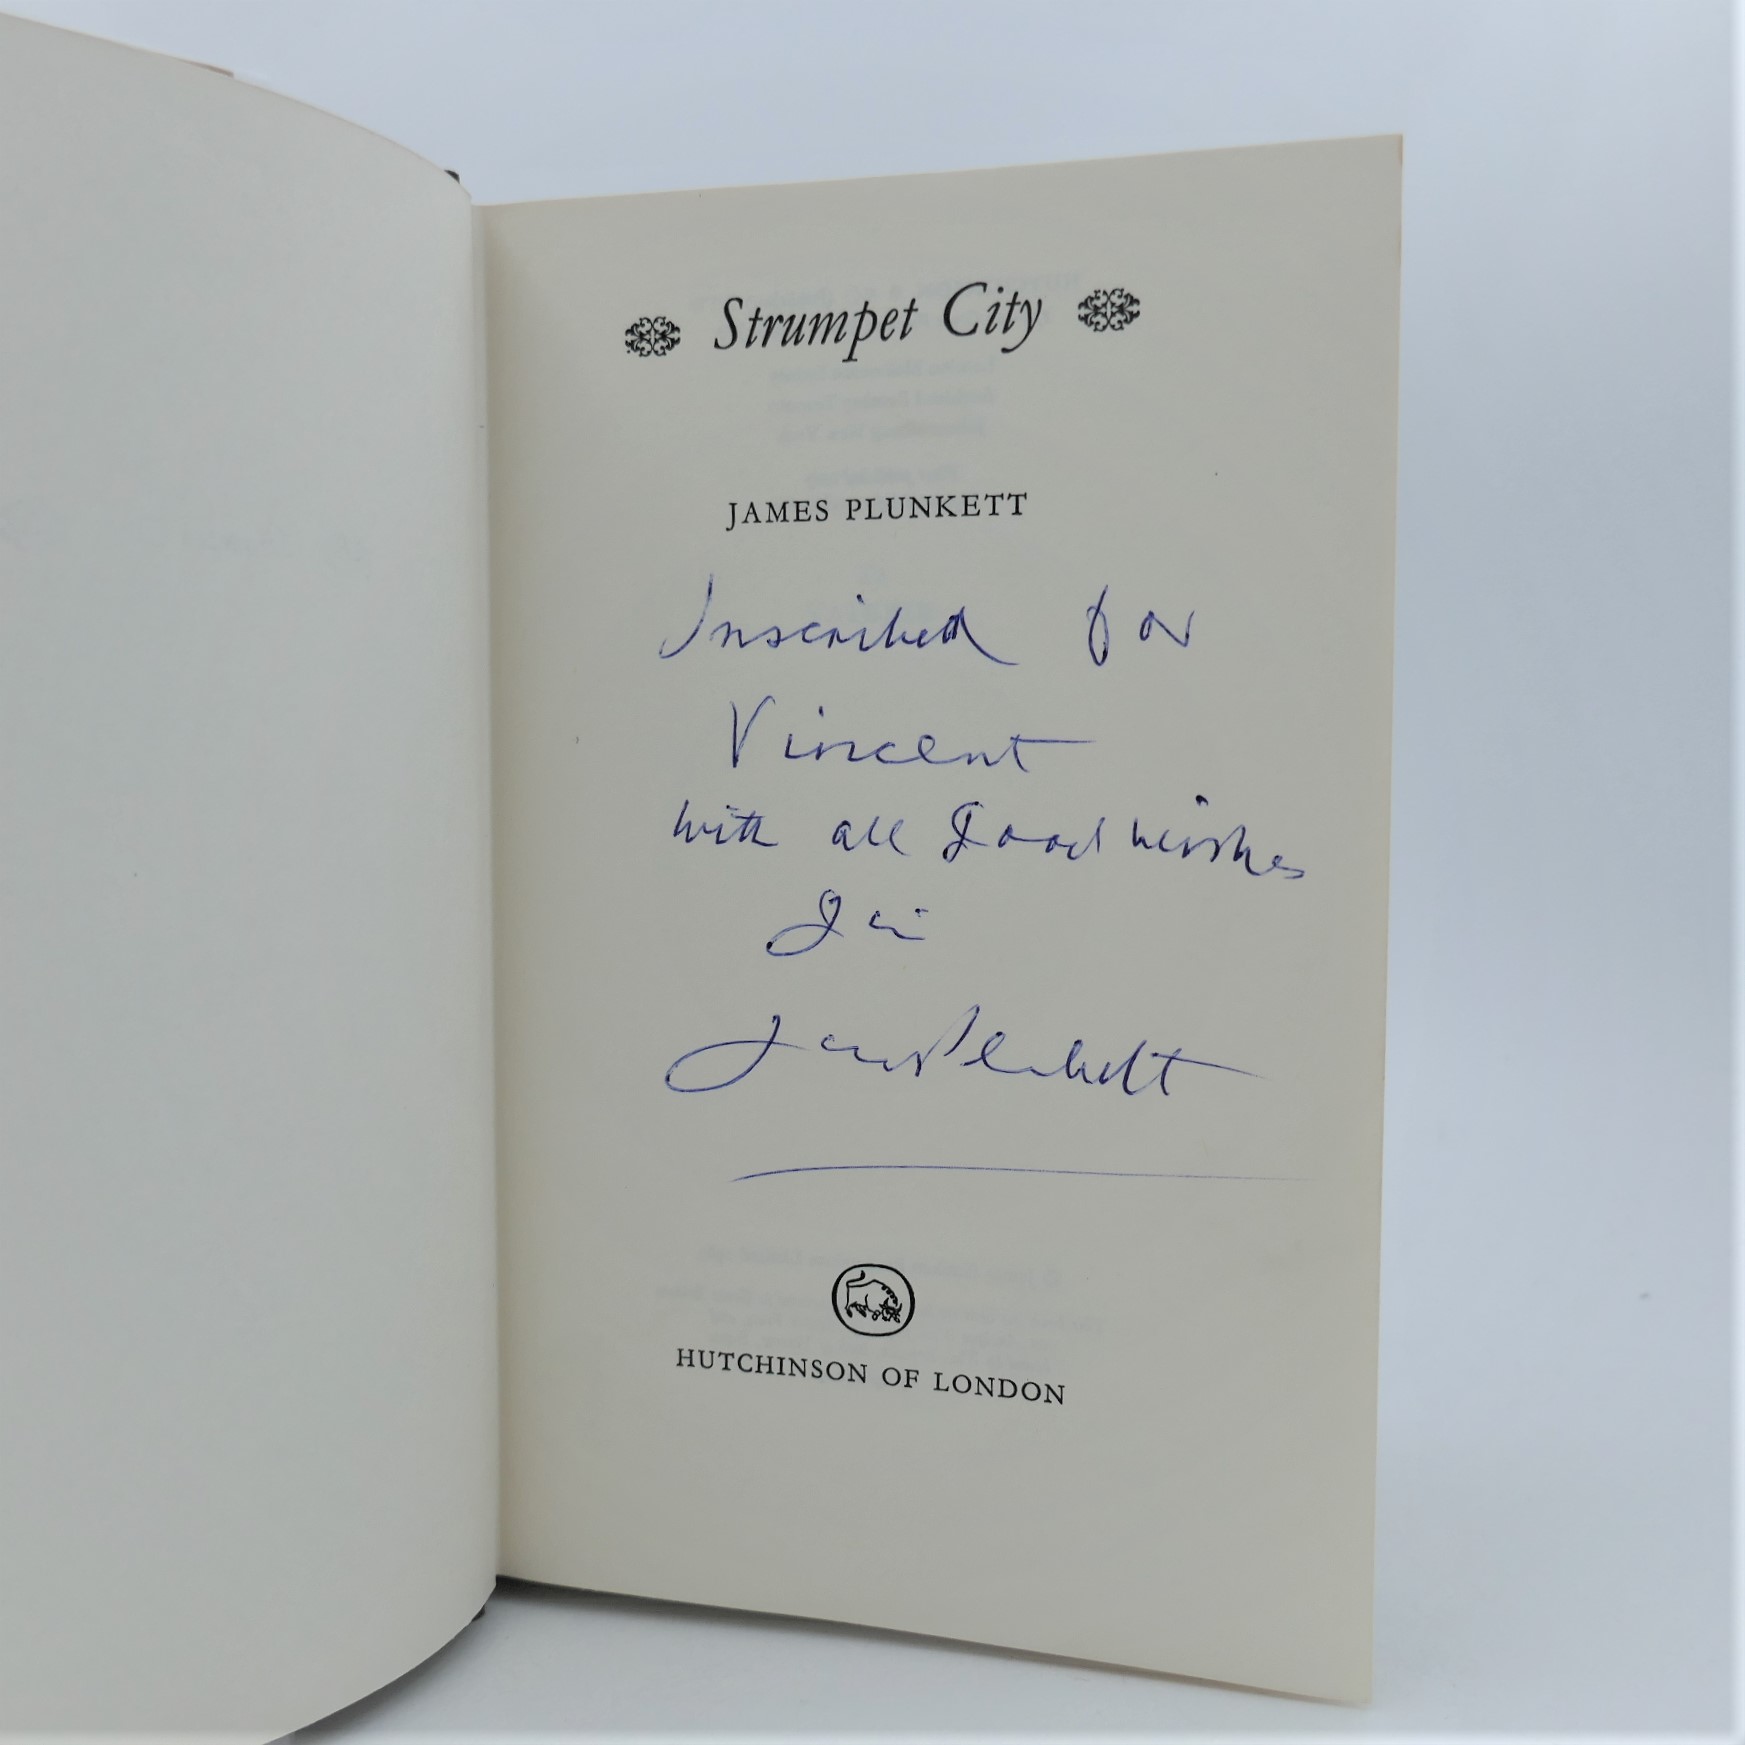 Strumpet City
JAMES PLUNKETT
Inscribed for
Vincent
with all good wishes
Jim
James Plunkett
HUTCHINSON OF LONDON